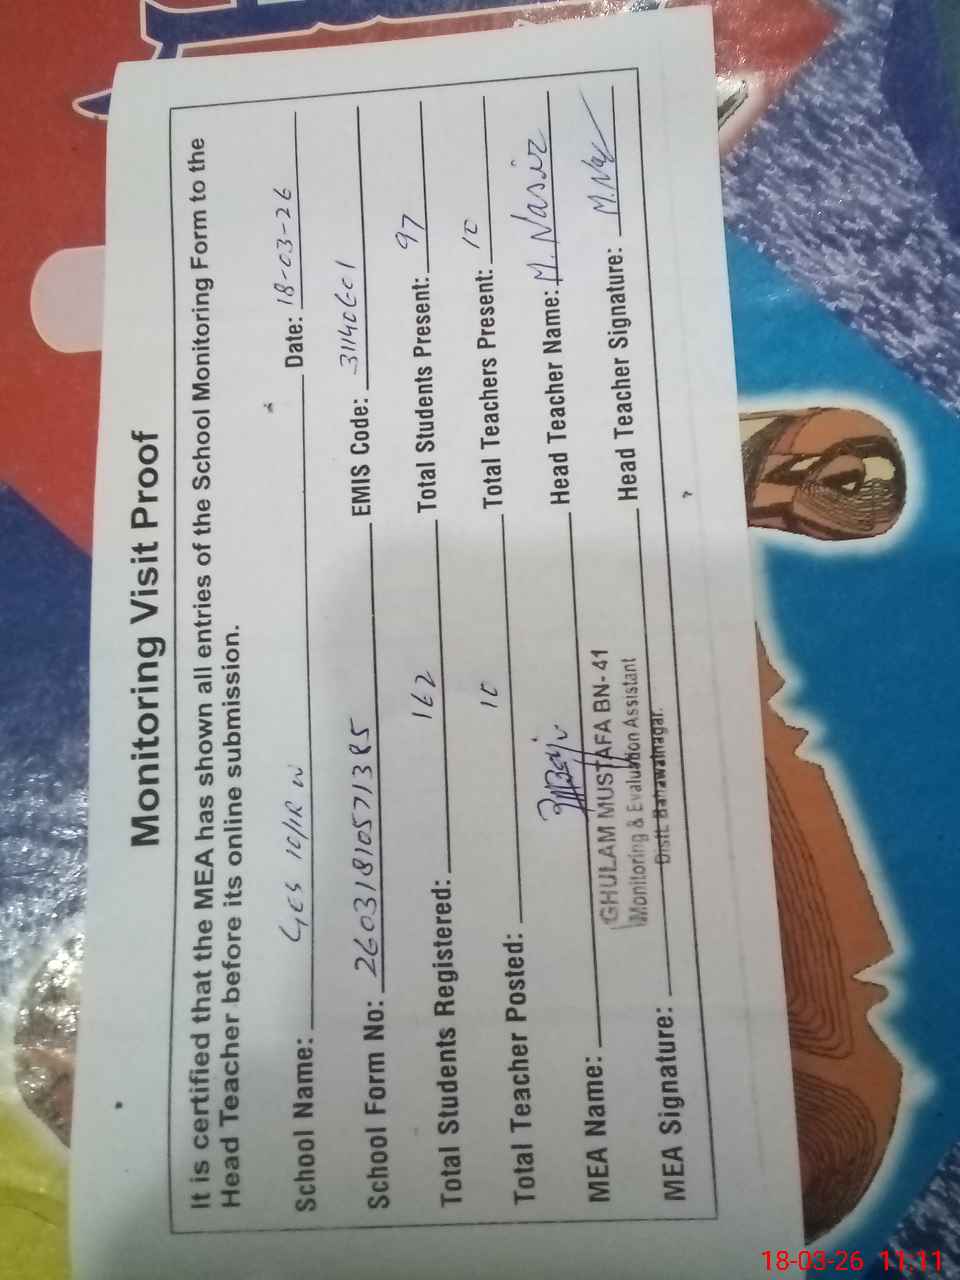 Monitoring Visit Proof
It is certified that the MEA has shown all entries of the School Monitoring Form to the
Head Teacher before its online submission.
School Name: GES 10/1R W Date: 18-03-26
School Form No: 26031810571385 EMIS Code: 31140601
Total Students Registered: 162 Total Students Present: 97
Total Teacher Posted: 10 Total Teachers Present: 10
MEA Name: Head Teacher Name: M. Nasir
GHULAM MUSTAFA BN-41
Monitoring & Evaluation Assistant
Distt. Bahawalnagar.
MEA Signature: Head Teacher Signature: M. Nas
18-03-26 11:11